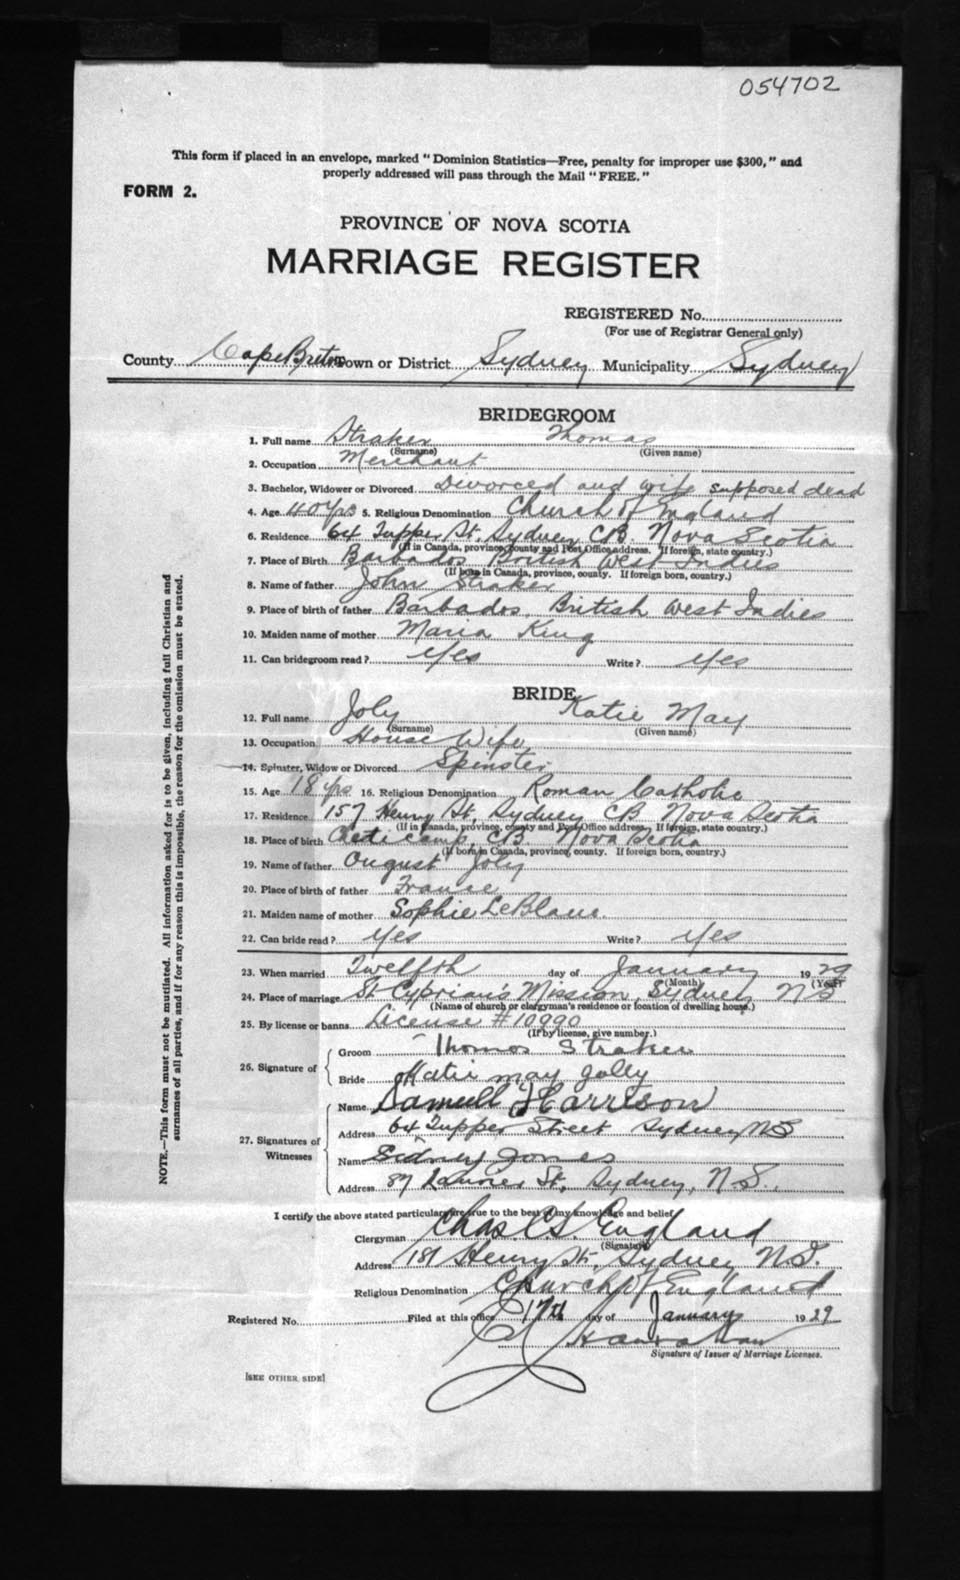 054702
This form if placed in an envelope, marked "Dominion Statistics—Free, penalty for improper use $300," and
properly addressed will pass through the Mail "FREE."
FORM 2.
PROVINCE OF NOVA SCOTIA
MARRIAGE REGISTER
REGISTERED No.
(For use of Registrar General only)
County Cape Breton Town or District Sydney Municipality Sydney
BRIDEGROOM
1. Full name Straker Thomas
(Surname) (Given name)
2. Occupation Merchant
3. Bachelor, Widower or Divorced Divorced and wife supposed dead
4. Age 40 yrs 5. Religious Denomination Church of England
6. Residence 64 Tupper St. Sydney CB. Nova Scotia
(If in Canada, province, county and Post Office address. If foreign, state country.)
7. Place of Birth Barbados British West Indies
(If born in Canada, province, county. If foreign born, country.)
8. Name of father John Straker
9. Place of birth of father Barbados, British West Indies
10. Maiden name of mother Maria King
11. Can bridegroom read? Yes Write? Yes
BRIDE
12. Full name Joly Katie May
(Surname) (Given name)
13. Occupation House Wife
14. Spinster, Widow or Divorced Spinster
15. Age 18 yrs 16. Religious Denomination Roman Catholic
17. Residence 157 Henry St, Sydney CB Nova Scotia
(If in Canada, province, county and Post Office address. If foreign, state country.)
18. Place of birth Cheticamp, CB. Nova Scotia
(If born in Canada, province, county. If foreign born, country.)
19. Name of father August Joly
20. Place of birth of father France
21. Maiden name of mother Sophie LeBlanc.
22. Can bride read? Yes Write? Yes
23. When married Twelfth day of January 1929
(Month) (Year)
24. Place of marriage St Cyprian's Mission, Sydney NS
(Name of church or clergyman's residence or location of dwelling house.)
25. By license or banns License #10990
(If by license, give number.)
26. Signature of
Groom Thomas Straker
Bride Katie may Jolly
27. Signatures of Witnesses
Name Samuell Harrison
Address 64 Tupper Street Sydney NS
Name Sidney Jones
Address 87 St, Sydney, N.S.
I certify the above stated particulars are true to the best of my knowledge and belief
Clergyman Chas. England
(Signature)
Address 181 Henry St, Sydney N.S.
Religious Denomination Church of England
Registered No. Filed at this office 17th day of January 1929
Signature of Issuer of Marriage Licenses.
[SEE OTHER SIDE]
NOTE.—This form must not be mutilated. All information asked for is to be given, including full Christian and
surnames of all parties, and if for any reason this is impossible, the reason for the omission must be stated.